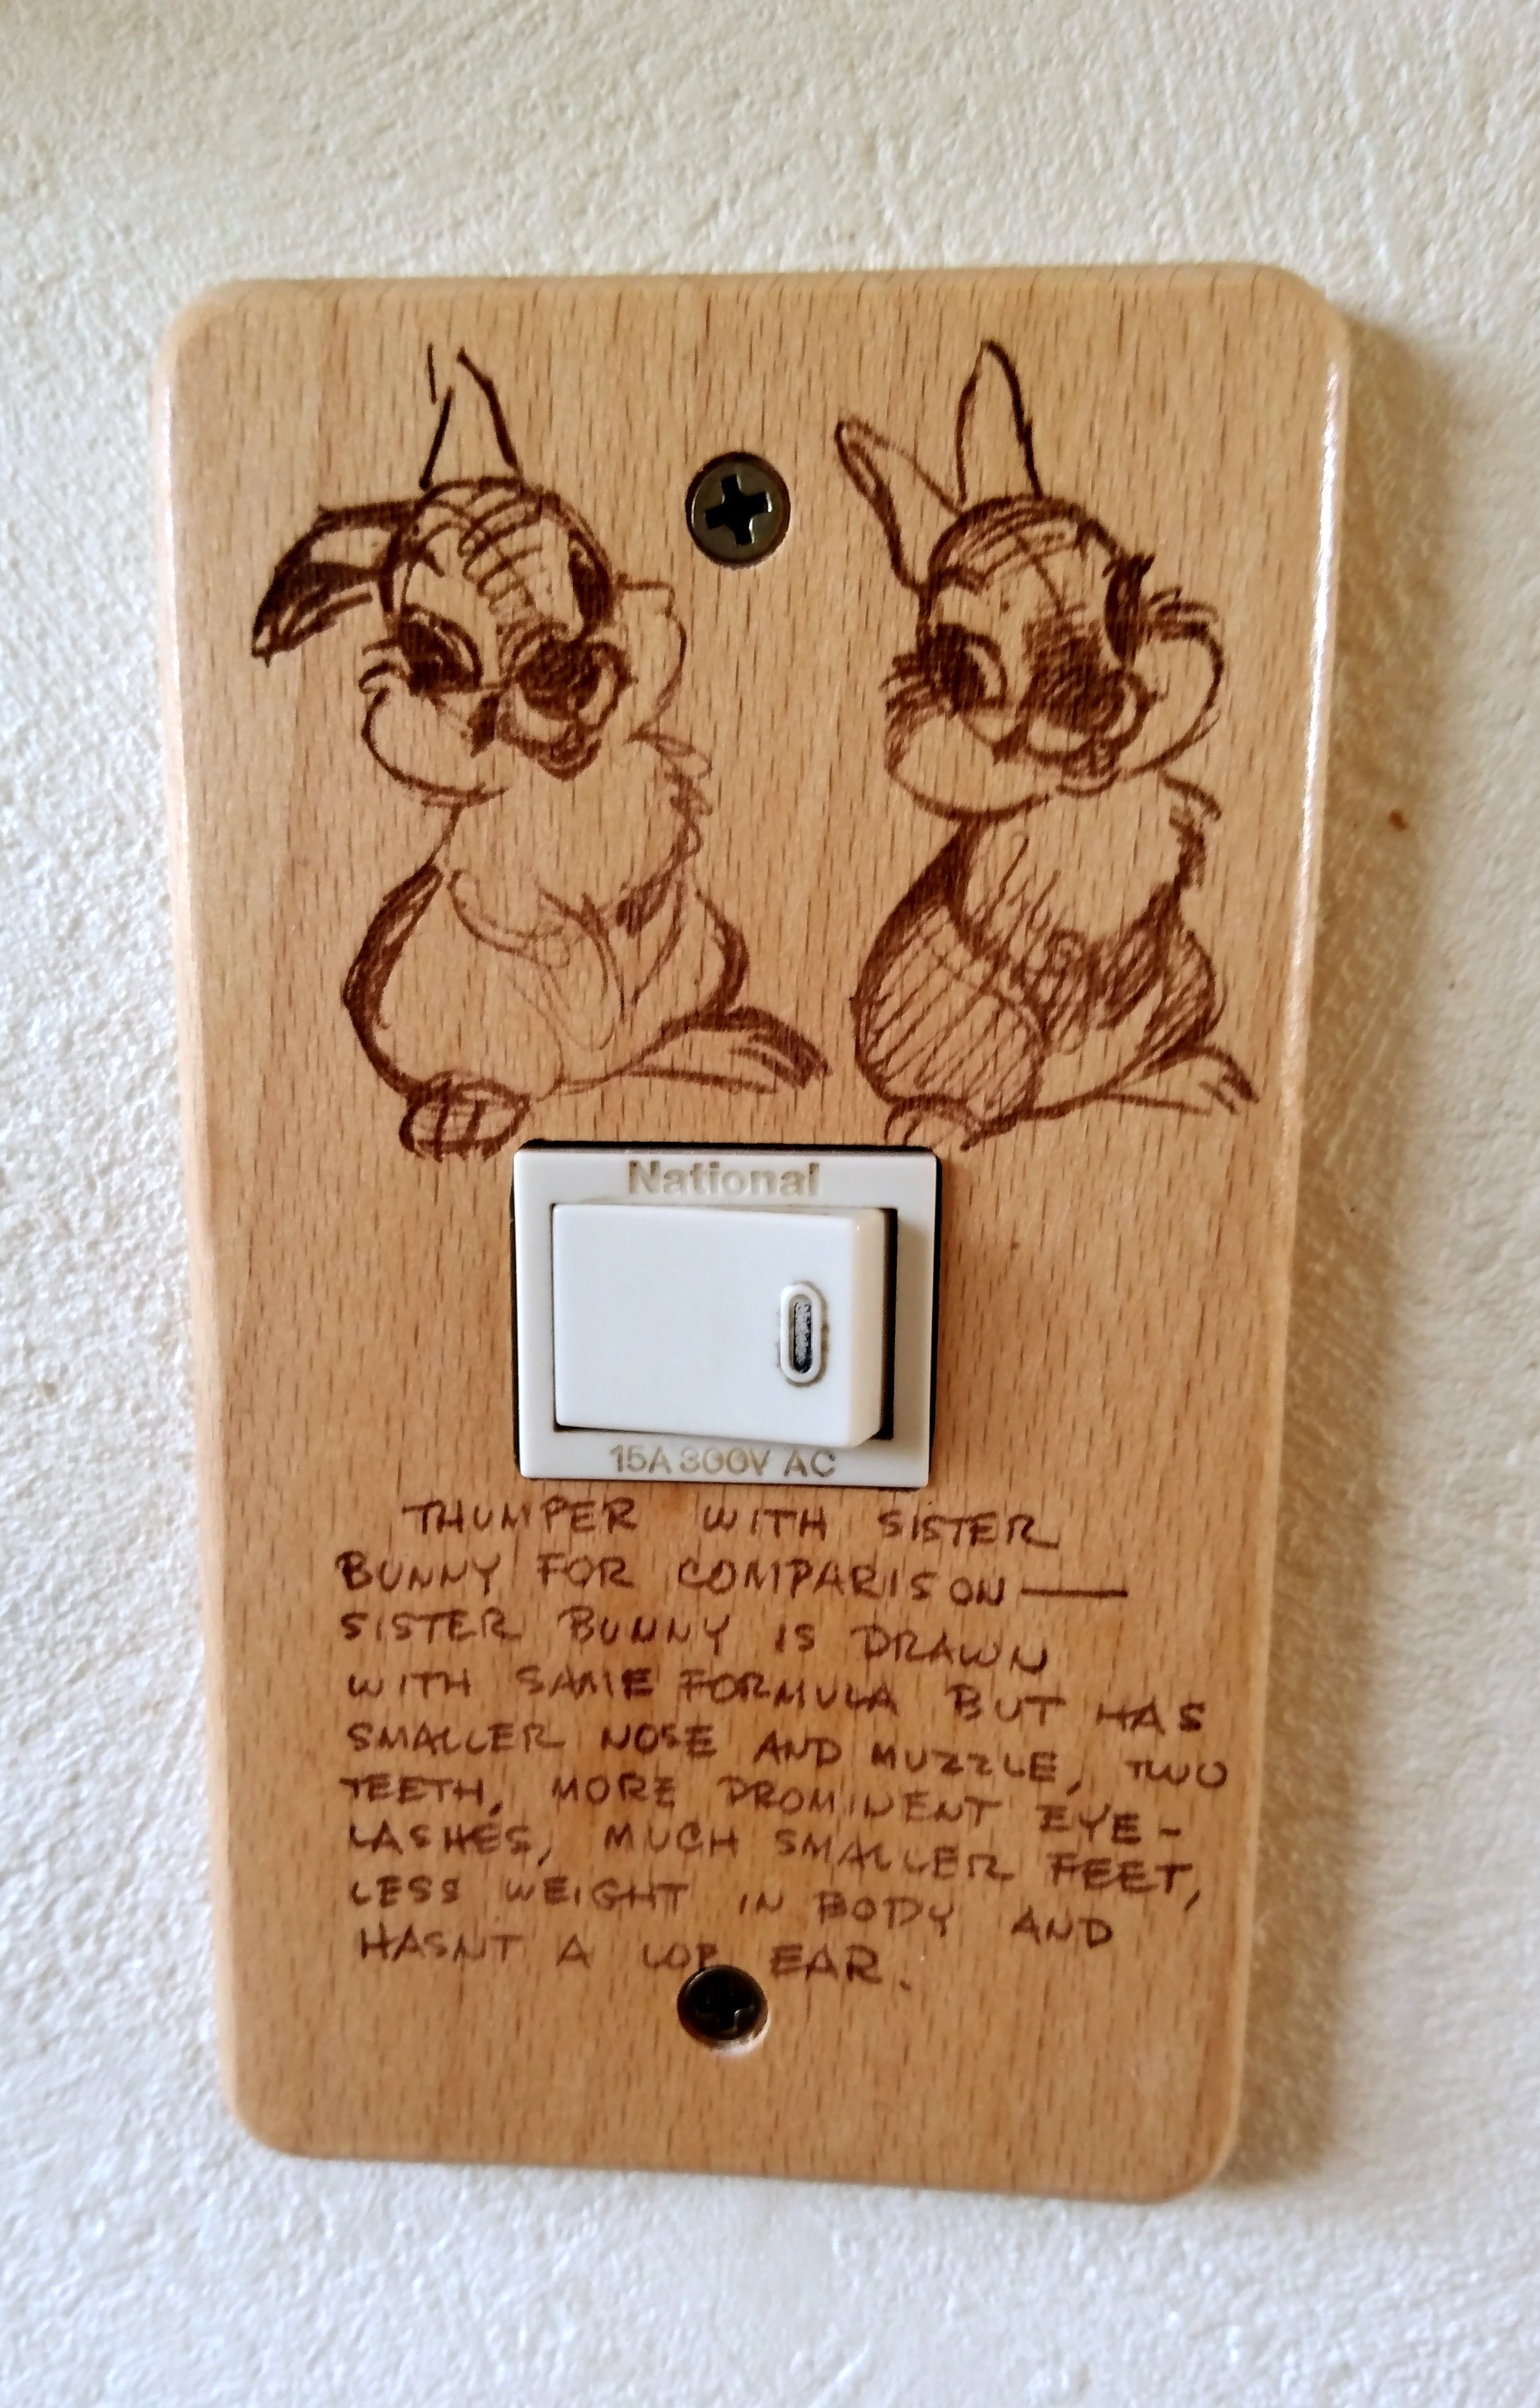 National
15A 300V AC
THUMPER WITH SISTER
BUNNY FOR COMPARISON —
SISTER BUNNY IS DRAWN
WITH SAME FORMULA BUT HAS
SMALLER NOSE AND MUZZLE, TWO
TEETH, MORE PROMINENT EYE-
LASHES, MUCH SMALLER FEET,
LESS WEIGHT IN BODY AND
HASNT A LOP EAR.